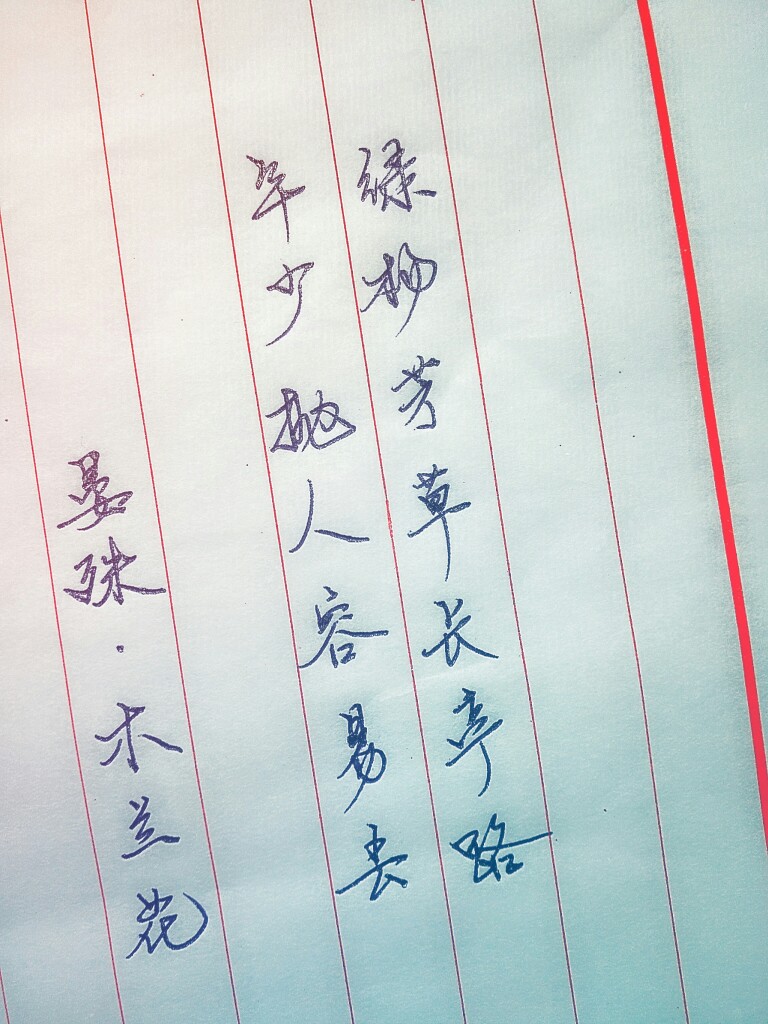 绿杨芳草长亭路
年少抛人容易去
晏殊·木兰花